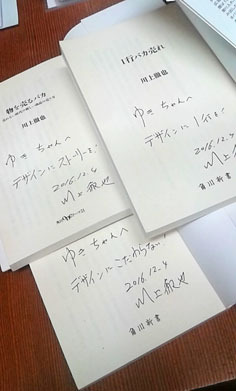 物を売るバカ
川上徹也
ゆきちゃんへ
デザインにストーリーを!
2016.12.4
川上徹也
1行バカ売れ
川上徹也
ゆきちゃんへ
デザインに1行を!
2016.12.4
川上徹也
角川新書
ゆきちゃんへ
デザインにこだわらない
2016.12.4
川上徹也
角川新書